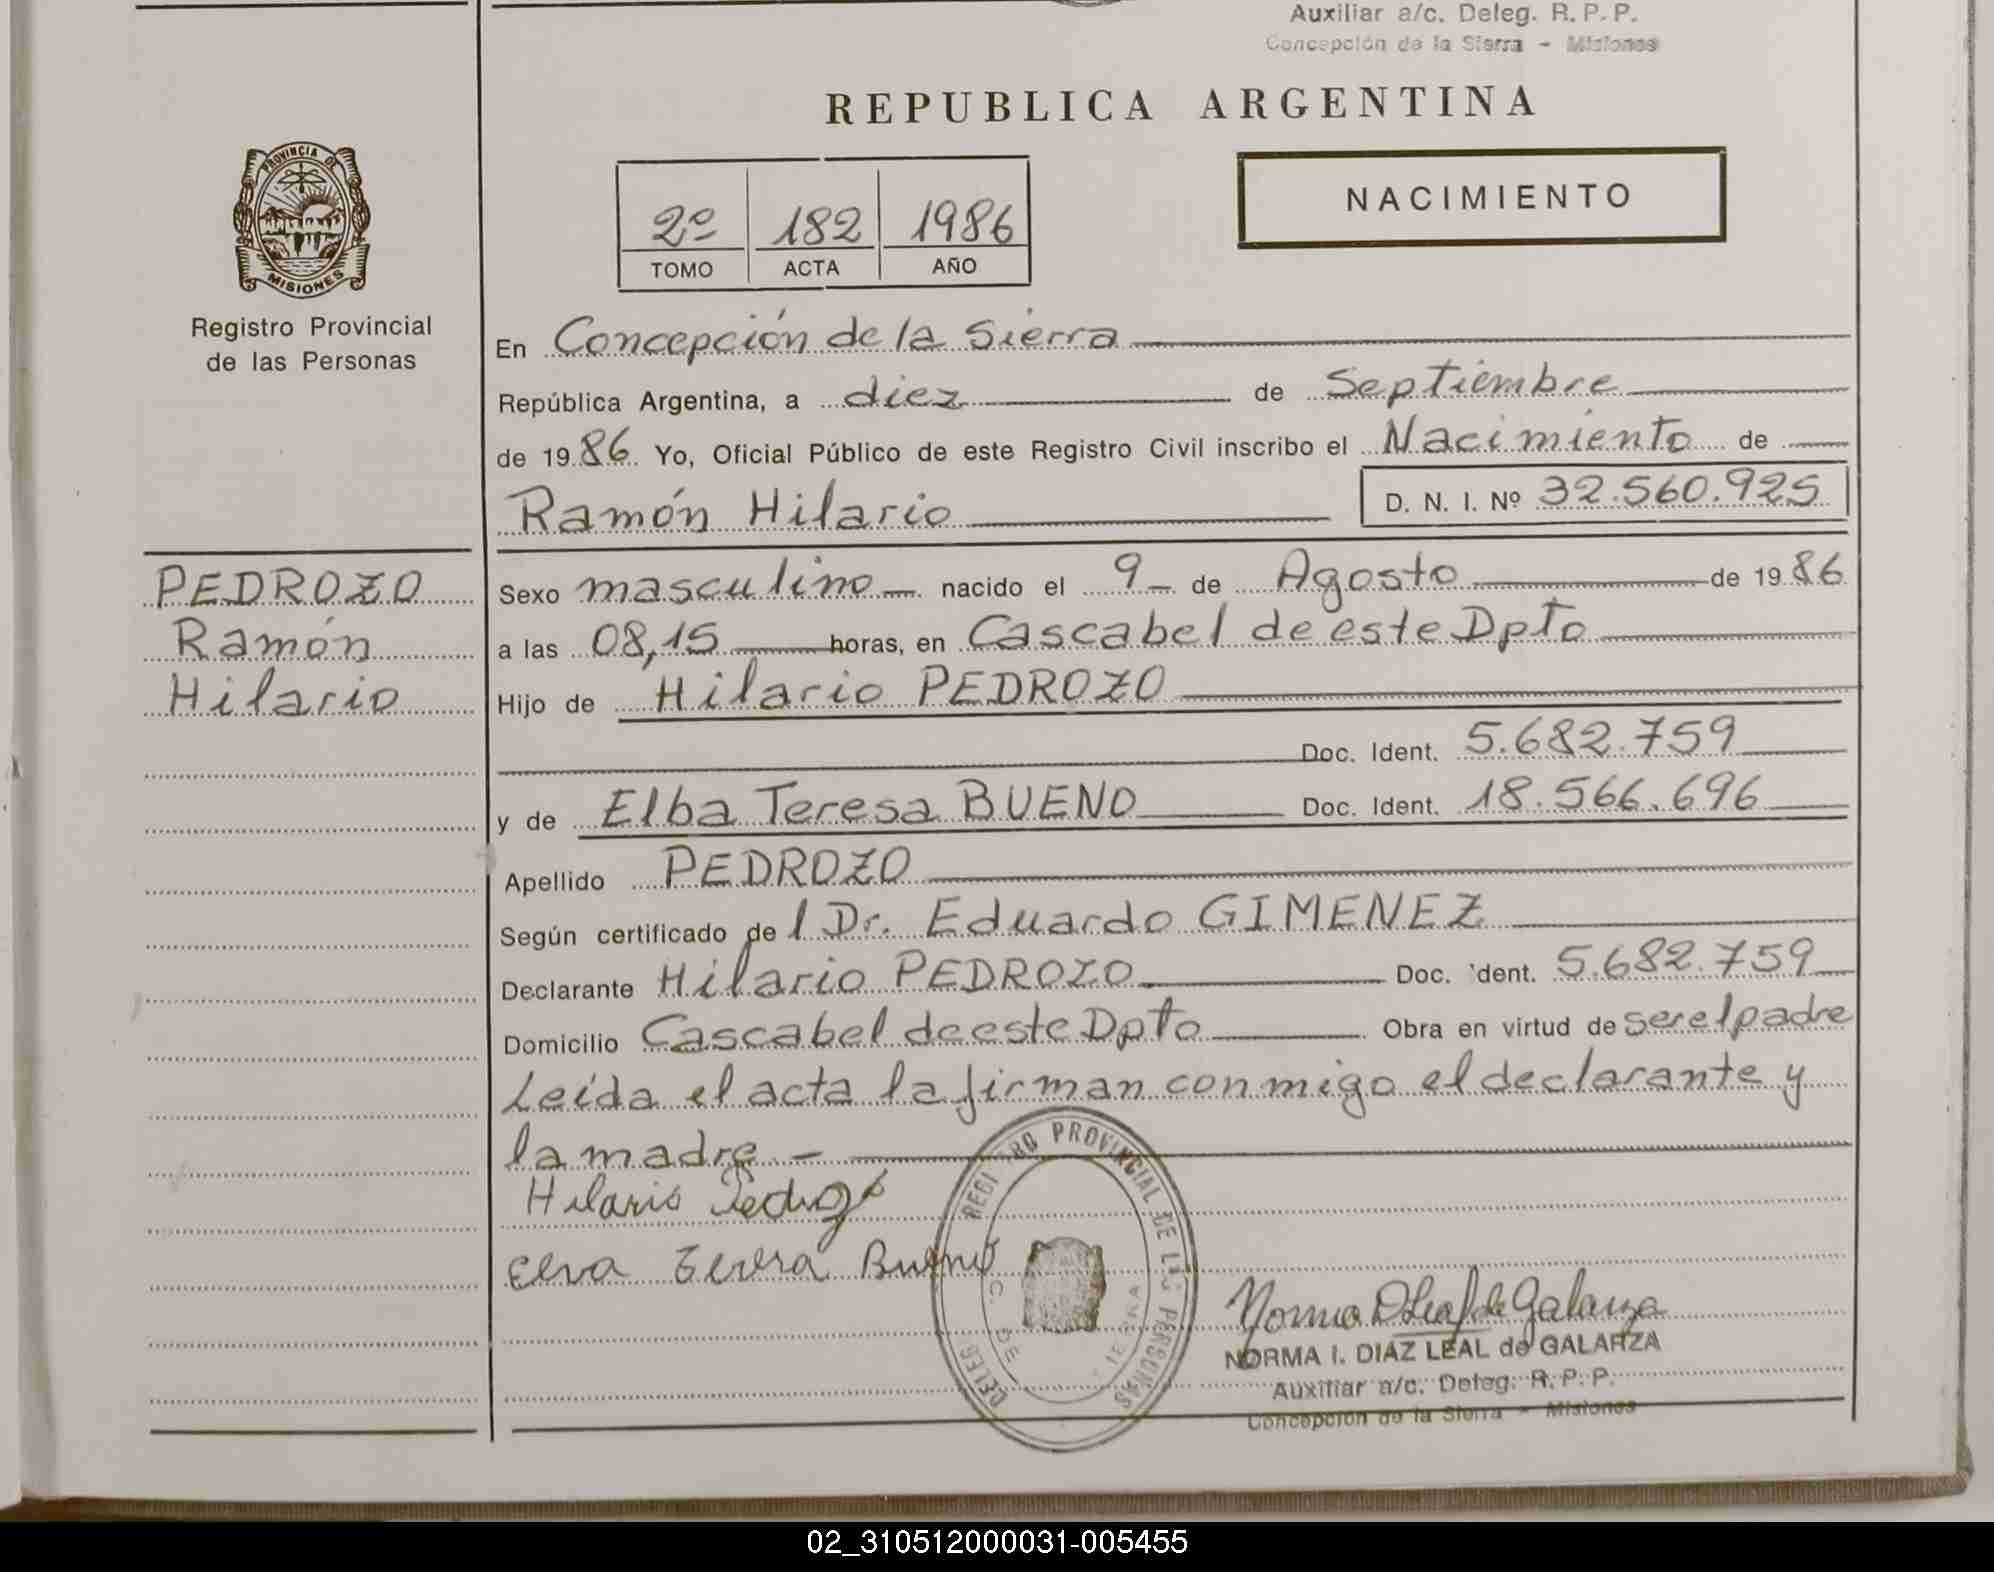 Auxiliar a/c. Deleg. R. P. P.
Concepción de la Sierra - Misiones
REPUBLICA ARGENTINA
PROVINCIA DE
MISIONES
Registro Provincial
de las Personas
2º 182 1986
TOMO ACTA AÑO
NACIMIENTO
En Concepción de la Sierra
República Argentina, a diez de Septiembre
de 1986 Yo, Oficial Público de este Registro Civil inscribo el Nacimiento de
Ramón Hilario D. N. I. Nº 32.560.925
PEDROZO
Ramón
Hilario
Sexo masculino nacido el 9 de Agosto de 1986
a las 08,15 horas, en Cascabel de este Dpto
Hijo de Hilario PEDROZO
Doc. Ident. 5.682.759
y de Elba Teresa BUENO Doc. Ident. 18.566.696
Apellido PEDROZO
Según certificado del Dr. Eduardo GIMENEZ
Declarante Hilario PEDROZO Doc. Ident. 5.682.759
Domicilio Cascabel de este Dpto Obra en virtud de ser el padre
Leída el acta la firman conmigo el declarante y
la madre -
Hilario Pedrozo
Elva Teresa Bueno
REGISTRO PROVINCIAL DE LAS PERSONAS
DELEG
C. DE
Norma D Leal de Galarza
NORMA I. DIAZ LEAL de GALARZA
Auxiliar a/c. Deleg. R. P. P.
Concepción de la Sierra - Misiones
02_310512000031-005455